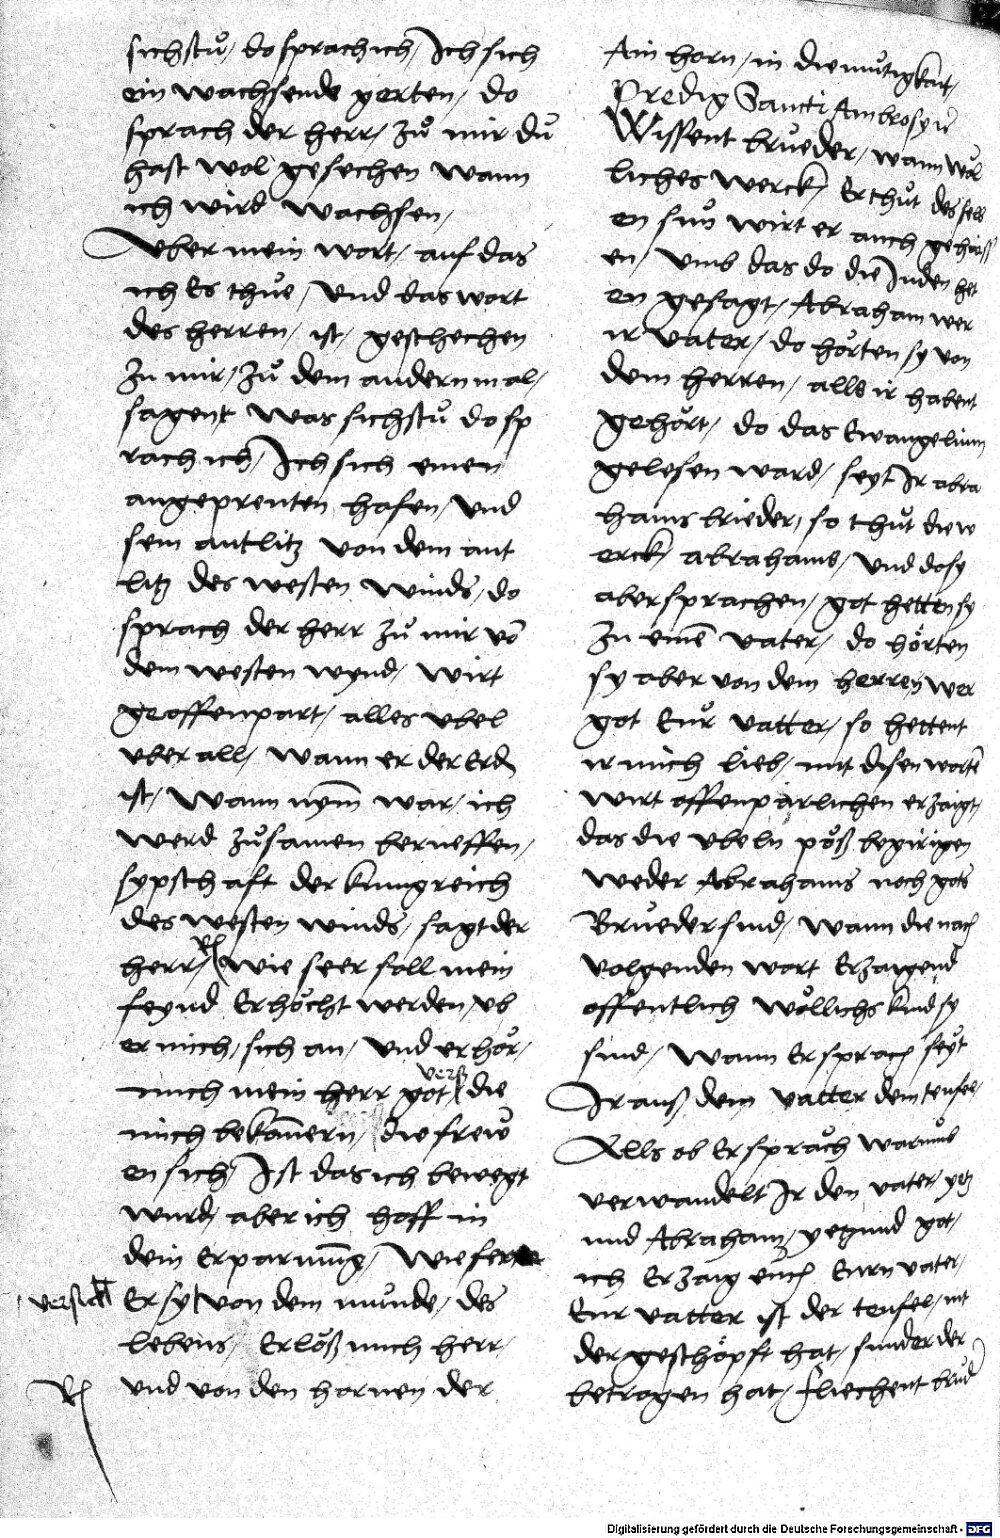 sichstu᷎, do sprach ich, Ich sich
ein wachsende gerten, do
sprach der herr, zu᷎ mir du
hast wol gesechen wann
ich wird wachsen,
Vber mein wort, auf das
ich Es thue, Vnd das wort
des herren, ist, geschechen
Zu mir, Zu᷎ dem andern mal,
sagent was sichstu᷎ do sp
rach ich, Ich sich einen
angeprenten hafen, Vnd
sein antlitz von dem ant
litz des westen winds, do
sprach der herr zu᷎ mir vō
dem westen wynd, wirt
geoffenpart, alles vbel
vber all, wann er der Erd
ist, Wann nym̄ war, ich
werd zu᷎samen berueffen,
sypschaft der kunigreich
des westen winds, sagt der
herr, R Wie seer soll mein
feynd Erhöcht werden, vb
er mich, sich an, Vnd erhör,
mich mein herr got verß die
mich bekom̄ern, die frew
en sich, Ist das ich bewegt
wurd, aber ich hoff in
dein Erparmu̅g, Wie fer
versickl Er sy von dem munde, des
lebens, Erlöß mich herr,
R Vnd von den hornen der
Ain horn, in diemu᷎tigkait,
Predig Sancti Ambrosy
Wissent brueder, wann wöl
liches werck, Er thu᷎t des sels
en sun wirt er auch gehaiss
en, Vmb das do die Juden het
en gesagt, Abraham wer
ir vater, do hörten sy von
dem herren, alls ir habent
gehört, do das Ewangelium
gelesen ward, seyt Ir abra
hams brieder, so thu᷎t die w
erck, abrahams, Vnd do sy
aber sprachen, got hetten sy
Zu eine̅ vater, do hörten
sy aber von dem herren wer
got Eur vatter, so hettent
ir mich lieb, mit disen worte̅
wirt offenpärlichen erzaigt,
das die vbeln pöß begirigen
weder Abrahams noch gots
Brueder sind, Wann die nach
volgenden wort Erzaigend
offentlich wöllichs kind sy
sind, Wann Er sprach seyt
Ir auß dem vatter dem teufel
Alls ob Er sprach warumb
verwandelt Ir den vater, yetz
und Abraham, yezund got,
ich Erzaig euch Eurn vater,
Eur vatter ist der teufel, nit
der geschöpft hat, sunder der
betrogen hat, fliechent brud
Digitalisierung gefördert durch die Deutsche Forschungsgemeinschaft - DFG